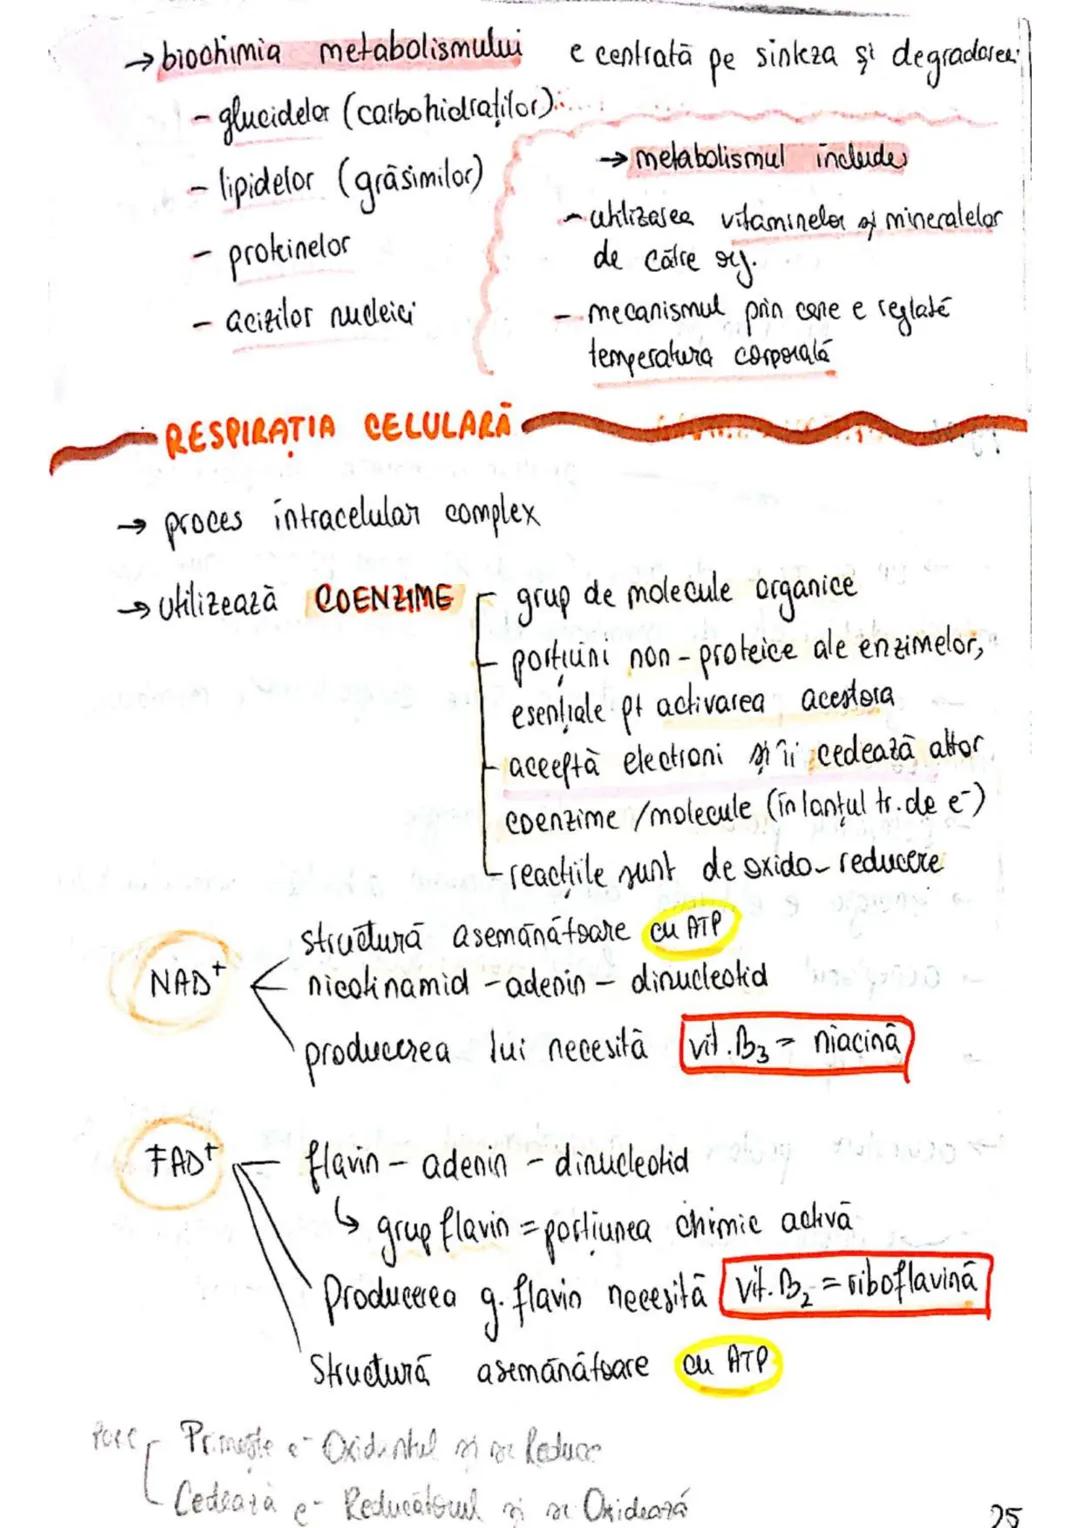 → biochimia metabolismului e centrată pe sinteza și degradarea:
- glucidelor (carbohidraților)
- lipidelor (grăsimilor)
- proteinelor
- acizilor nucleici
→ metabolismul include
- utilizarea vitaminelor și mineralelor
de către org.
- mecanismul prin care e reglată
temperatura corporală
RESPIRAȚIA CELULARĂ
→ proces intracelular complex
→ utilizează COENZIME
grup de molecule organice
porțiuni non-proteice ale enzimelor,
esențiale pt activarea acestora
acceptă electroni și îi cedează altor
coenzime /molecule (în lanțul tr. de e⁻)
reacțiile sunt de oxido-reducere
NAD⁺
structură asemănătoare cu ATP
nicotinamid - adenin - dinucleotid
producerea lui necesită vit. B₃ = niacină
FAD⁺
flavin - adenin - dinucleotid
↳ grup flavin = porțiunea chimic activă
Producerea g. flavin necesită vit. B₂ = riboflavină
Structură asemănătoare cu ATP
Primește e⁻ Oxidantul și se Reduce
Cedează e⁻ Reducătorul și se Oxidează
25